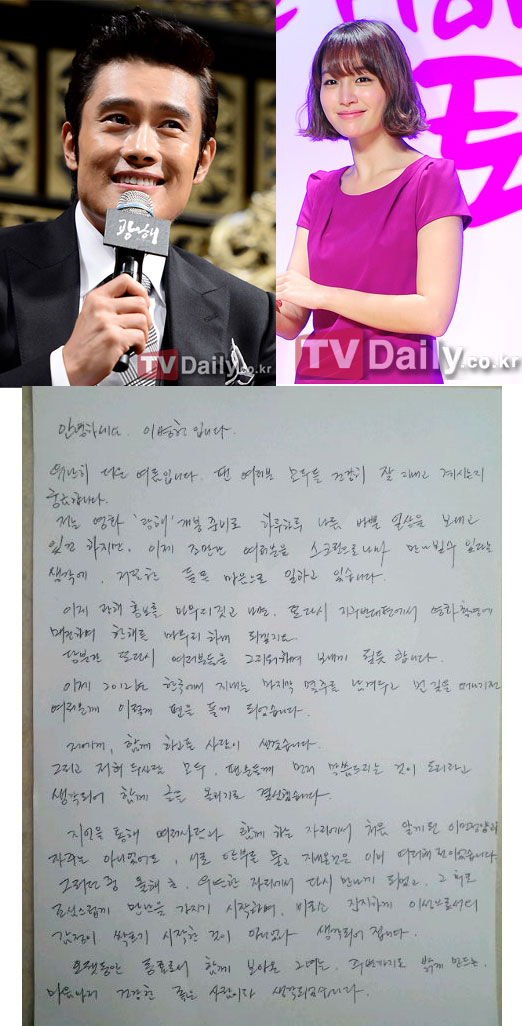 광해
TVDaily.co.kr
TVDaily.co.kr
안녕하세요. 이병헌입니다.
유난히 더운 여름입니다. 팬 여러분 모두들 건강히 잘 지내고 계시는지
궁금합니다.
저는 영화 '광해' 개봉 준비로 하루하루 나름 바쁜 일상을 보내고
있긴 하지만, 이제 조만간 여러분을 스크린으로나마 만나뵐수 있다는
생각에, 저 또한 들뜬 마음으로 일하고 있습니다.
이제 광해 홍보를 마무리 짓고 나면, 또다시 지구반대편에서 영화촬영에
매진하며 한해를 마무리하게 되겠지요.
당분간 또다시 여러분들을 그리워하며 보내게 될듯 합니다.
이제 2012년 한국에서 지내는 마지막 몇주를 남겨두고 먼 길을 떠나기전
여러분께 이렇게 펜을 들게 되었습니다.
저에게, 함께 하고픈 사람이 생겼습니다.
그리고 저희 두사람 모두, 팬분들께 먼저 말씀드리는 것이 도리라고
생각되어 함께 글을 올리기로 결심했습니다.
지인을 통해 여러사람과 함께 하는 자리에서 처음 알게된 이민정양과
자주는 아니었어도, 서로 안부를 묻고 지내온것은 이미 여러해전이었습니다.
그러던 중 올해 초, 우연한 자리에서 다시 만나게 되었고, 그 뒤로
조심스럽게 만남을 가지기 시작하며, 비로소 진지하게 이성으로서의
감정이 싹트기 시작한 것이 아니었나 생각되어 집니다.
오랫동안 동료로서 함께 보아온 그녀는, 주변까지도 밝게 만드는,
마음씨가 건강한 좋은 사람이다 생각되었습니다.